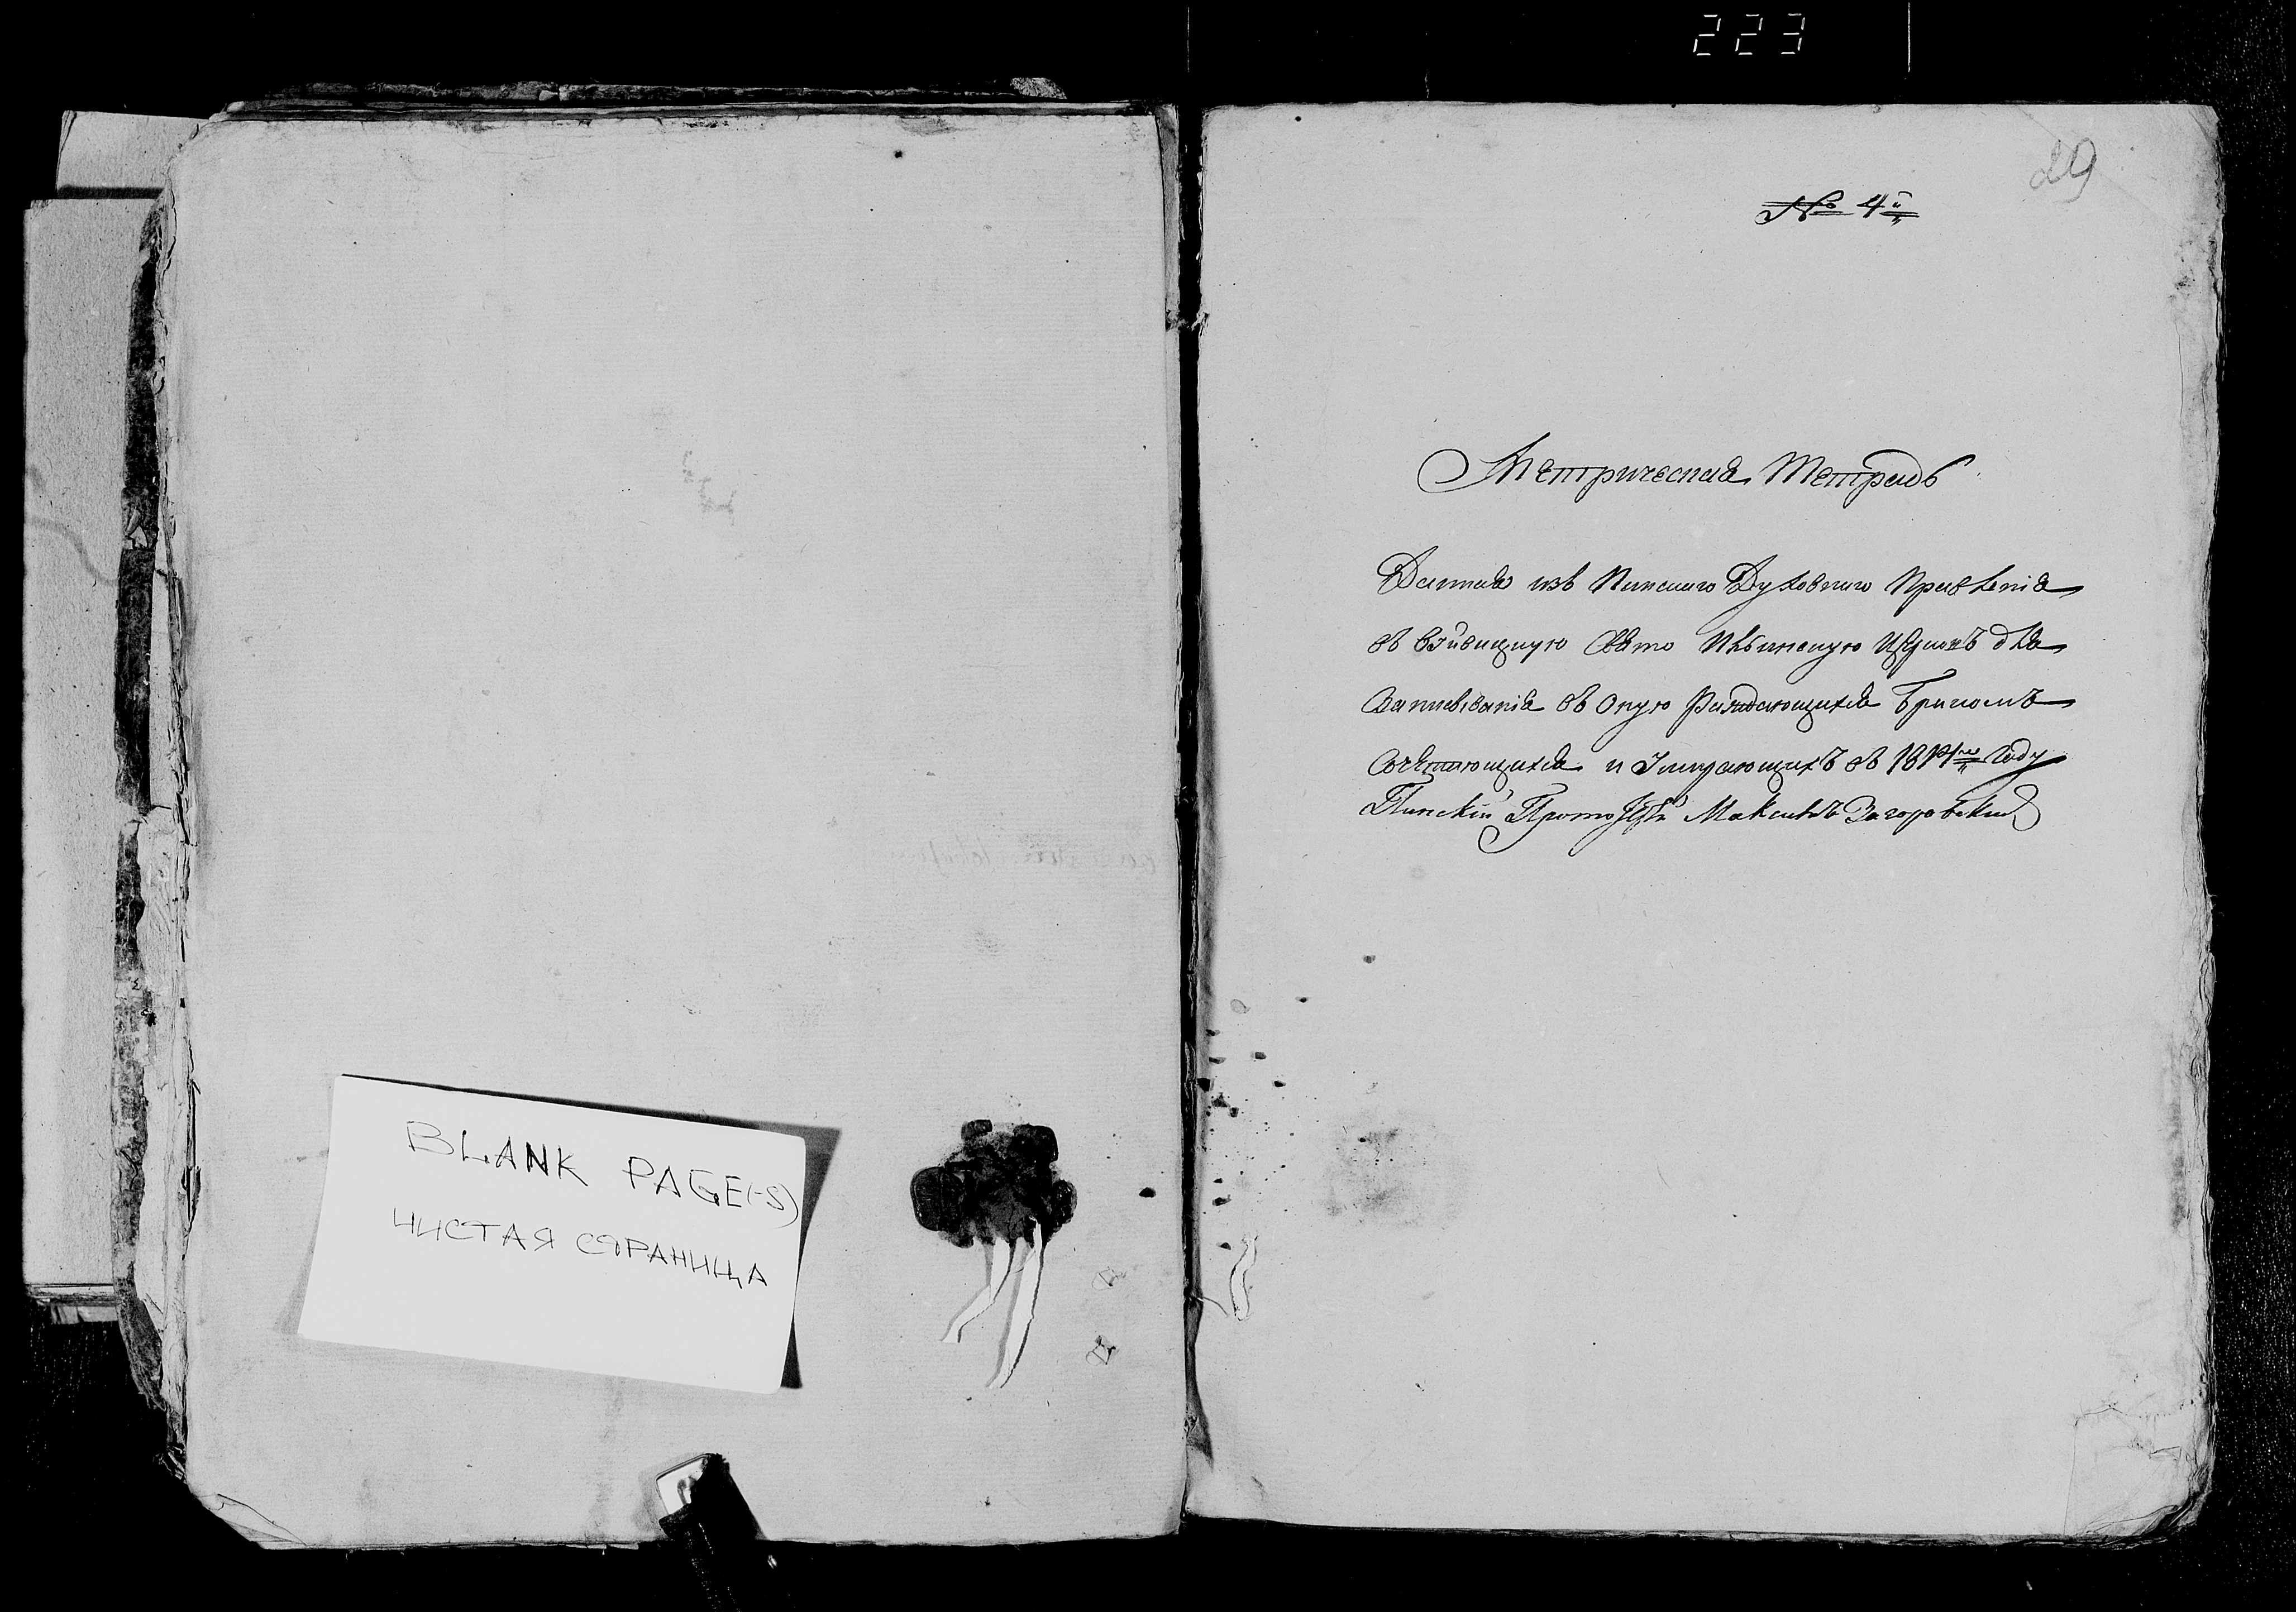 223
29
№ 4й
Метрическая Тетрадь
Данная изъ Пинскаго Духовнаго Правленія
въ Свято Ильинскую Церковь для
Записыванія въ оную Раждающихся Бракомъ
Сочетающихся и Умирающихъ въ 1814м Году
Пинскій Протоіерей Максимъ Загоровскій
BLANK PAGE(-S)
ЧИСТАЯ СТРАНИЦА